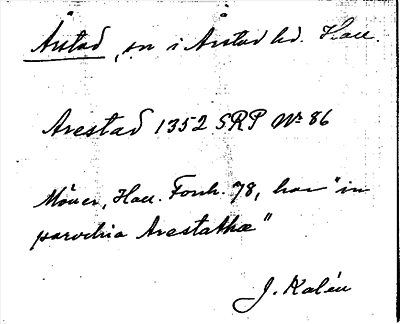 Årstad, sn i Årstad hd. Hall.
Arestad 1352 SRP Nr 86
Möller, Hall. Forsk. 78, har "in
parochia Arestathæ"
J. Kalén